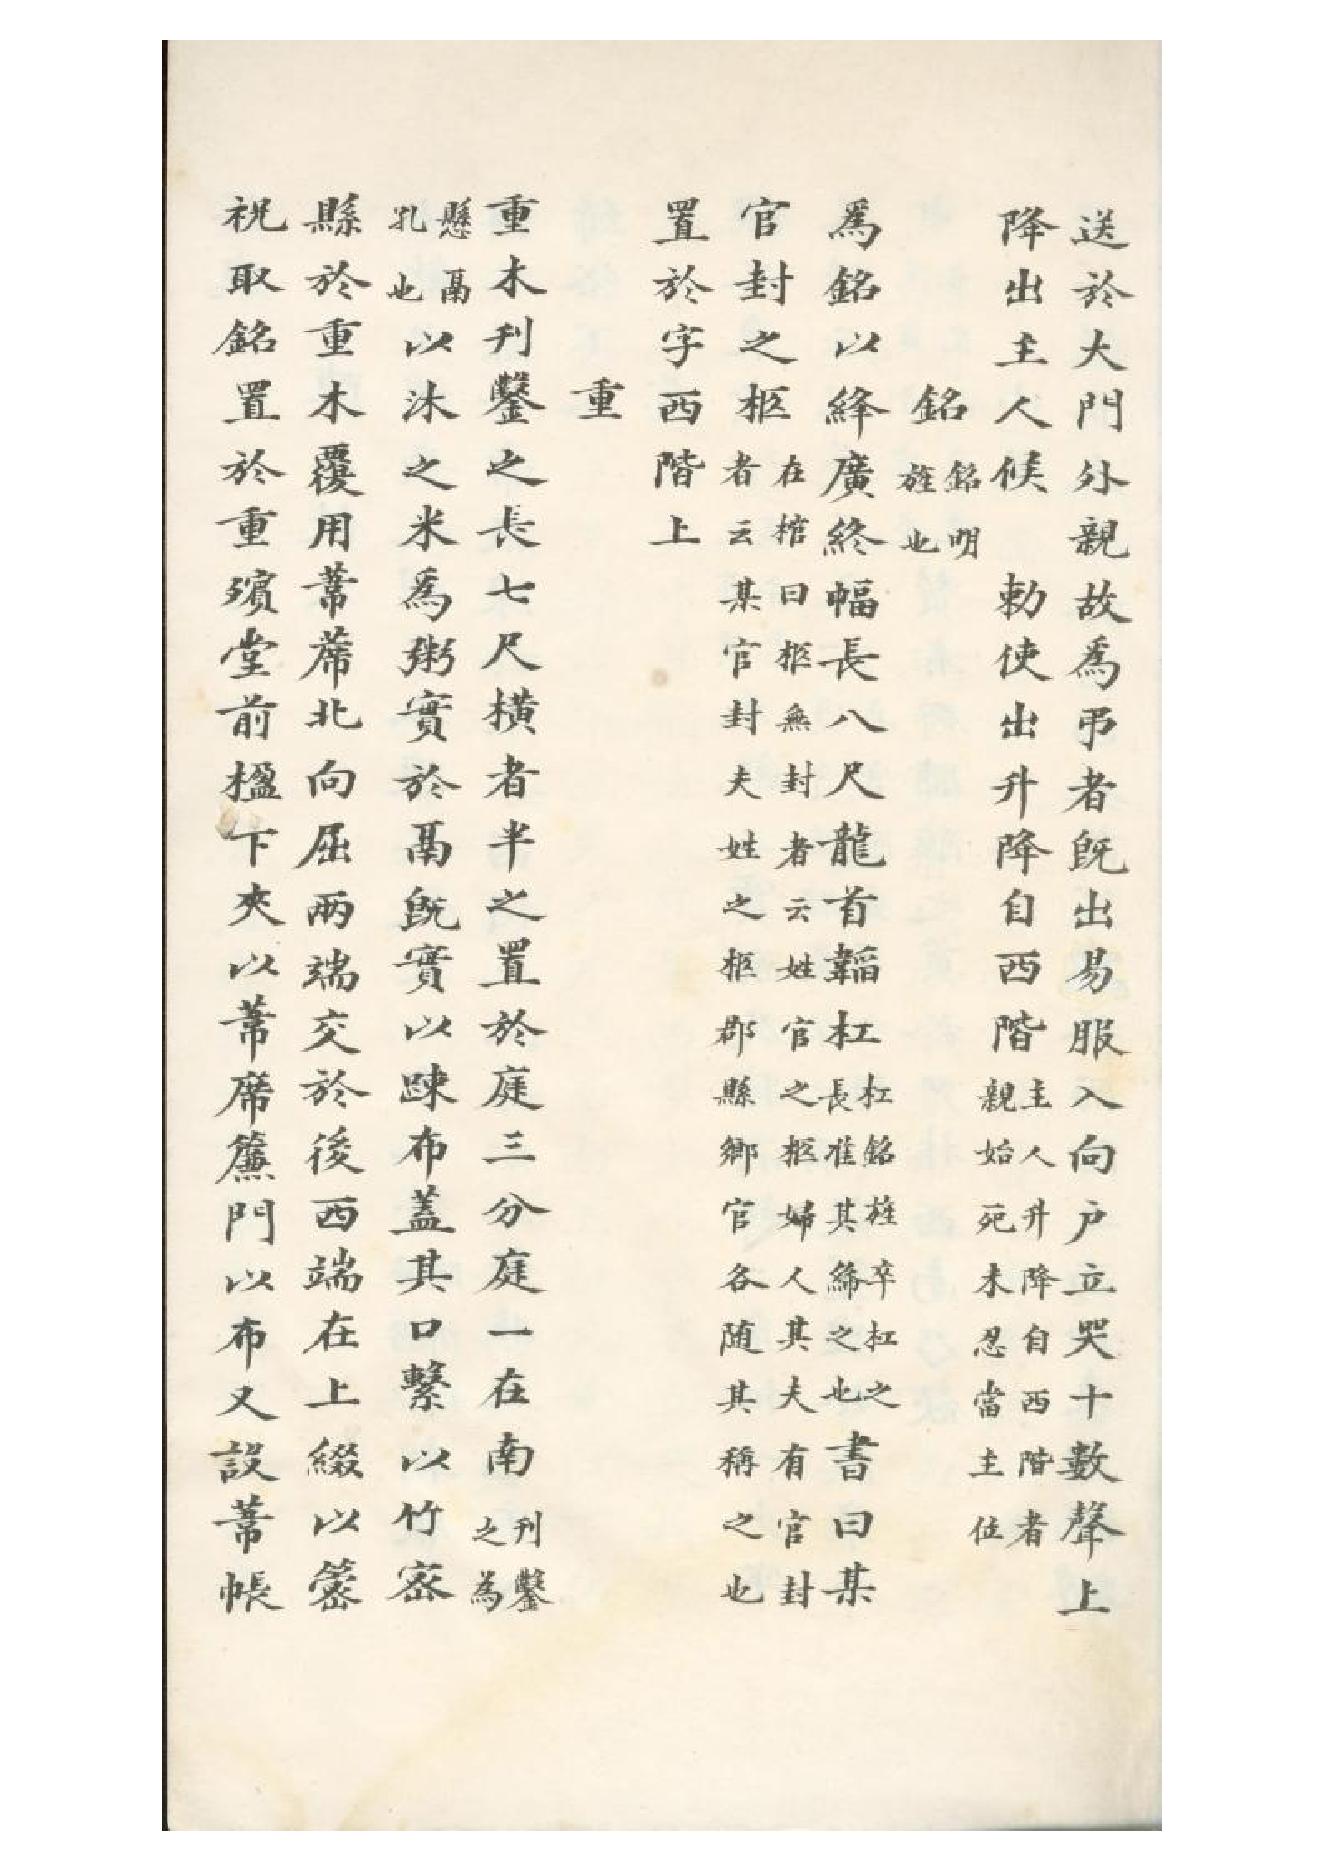 送於大門外親故爲弔者既出易服入向户立哭十數聲上
降出主人候　勅使出升降自西階主人升降自西階者親始死未忍當主位
銘銘明旌也
爲銘以絳廣終幅長八尺龍首韜杠杠銘旌卒杠之長准其絺之也書曰某
官封之柩在棺曰柩無封者云姓官之柩婦人其夫有官封者云某官封夫姓之柩郡縣鄉官各随其稱之也
置於字西階上
重
重木刊鑿之長七尺橫者半之置於庭三分庭一在南刊鑿之為
懸鬲孔也以沐之米爲粥實於鬲既實以疎布蓋其口繫以竹密
縣於重木覆用葦蓆北向屈兩端交於後西端在上綴以𥱼
祝取銘置於重殯堂前楹下夾以葦席簾門以布又設葦帳